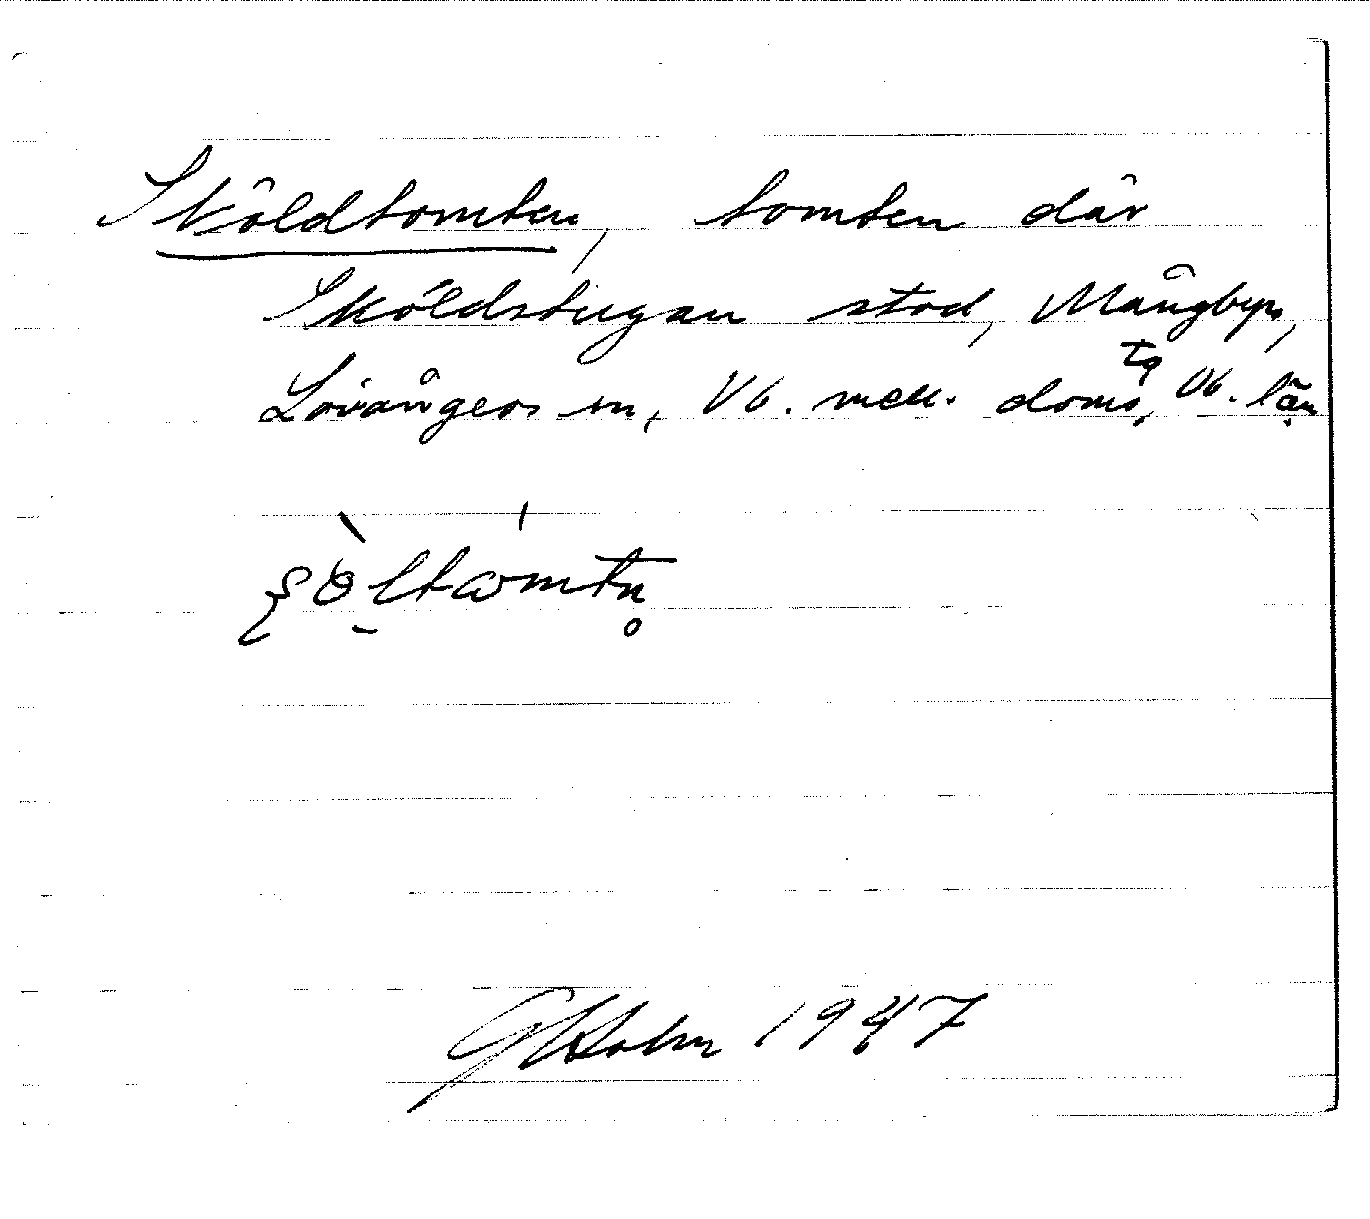 Sköldtomten, tomten där
Sköldstugan stod, Mångbyn,
Lövångers sn, Vb. mell. doms
tg, Vb. län
G Holm 1947